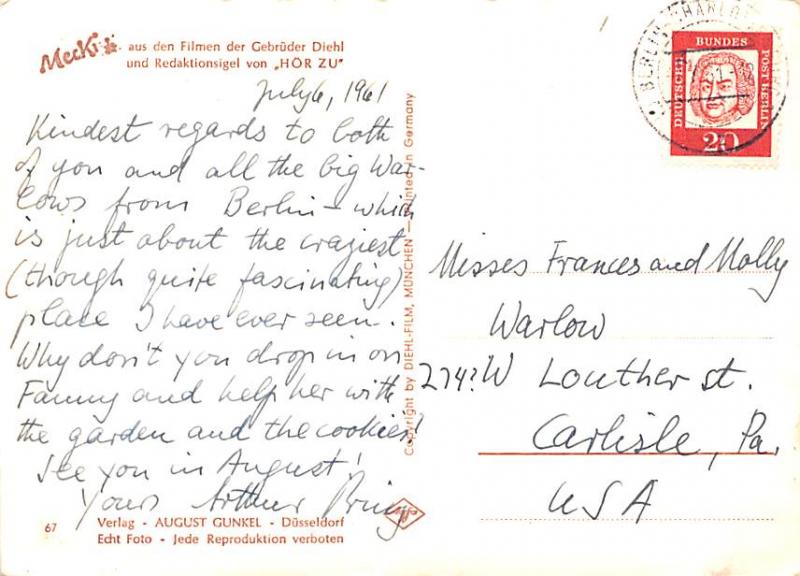 Mecki
aus den Filmen der Gebrüder Diehl
und Redaktionsigel von „HÖR ZU"
July 6, 1961
Kindest regards to both
of you and all the big War-
lows from Berlin – which
is just about the craziest
(though quite fascinating)
place I have ever seen.
Why don't you drop in on
Fanny and help her with
the garden and the cookies!
See you in August!
Yours Arthur
67
Verlag - AUGUST GUNKEL - Düsseldorf
Echt Foto - Jede Reproduktion verboten
Copyright by DIEHL-FILM, MÜNCHEN — Printed in Germany
BERLIN-CHARLO
DEUTSCHE BUNDESPOST BERLIN
20
Misses Frances and Molly
Warlow
274? W Louther st.
Carlisle, Pa.
USA